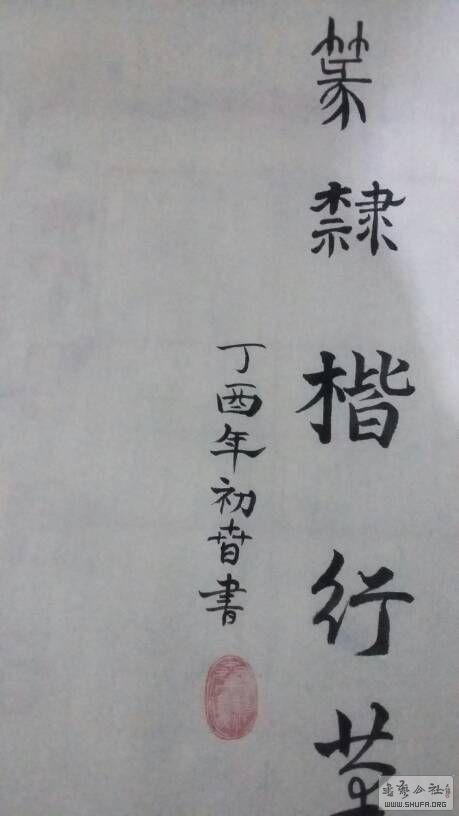 篆隸楷行草
丁酉年初春書
书艺公社
WWW.SHUFA.ORG